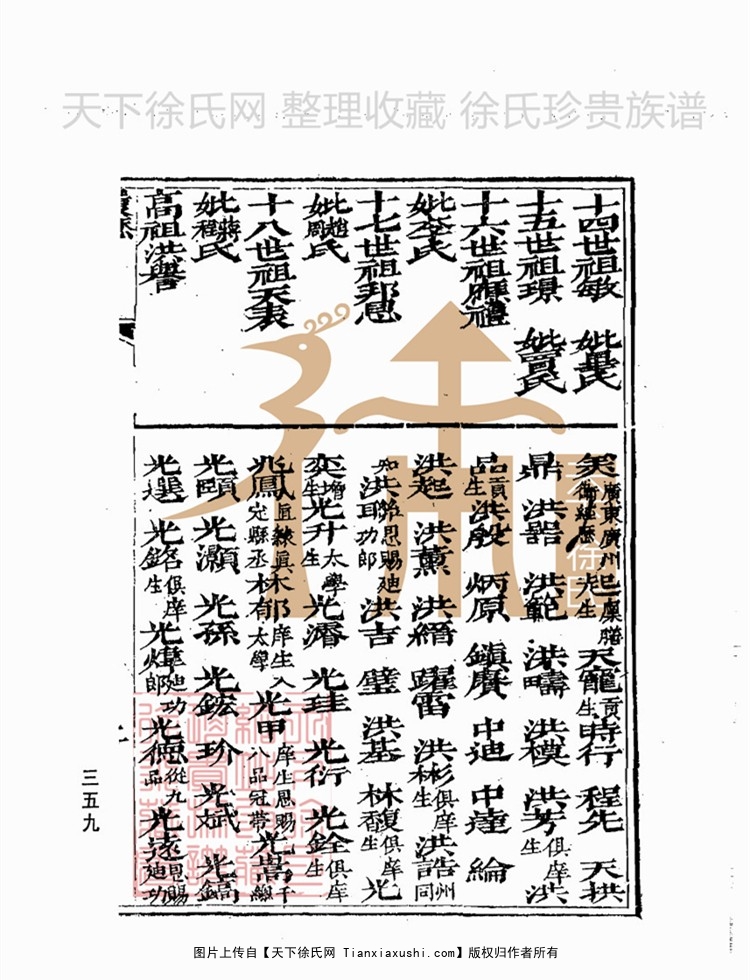 天下徐氏网 整理收藏 徐氏珍贵族谱
十四世祖敏 妣星氏
十五世祖璟 妣賈氏
十六世祖順禮
妣李氏
十七世祖邦思
妣趙周氏
十八世祖天衷
妣蔣程氏
高祖洪譽
廣東廣州衛經歷 起先 廩膳生 天寵 貢生 時行 程先 天拱
鼎 洪器 洪範 洪疇 洪模 洪芳 俱庠生 洪
品 貢生 洪殷 炳原 鎮賡 中迪 中達 綸
洪起 洪薰 洪縉 躍雷 洪彬 俱庠生 洪誥 州同
知 洪聰 恩賜廸功郎 洪吉 璧 洪基 林馥 俱庠生 光
奕 增生 光升 太學生 光濬 光珪 光衍 光銓 俱庠生
光鳳 定縣丞 庠生入太學 光甲 庠生恩賜八品冠帶 光嵩 千總
光頤 光灝 光孫 光鋐 玠 光斌 光鎬
光選 光 俱庠生 光煒 廸功郎 光德 從九品 光遠 恩賜廸功
三五九
图片上传自【天下徐氏网 Tianxiaxushi.com】版权归作者所有